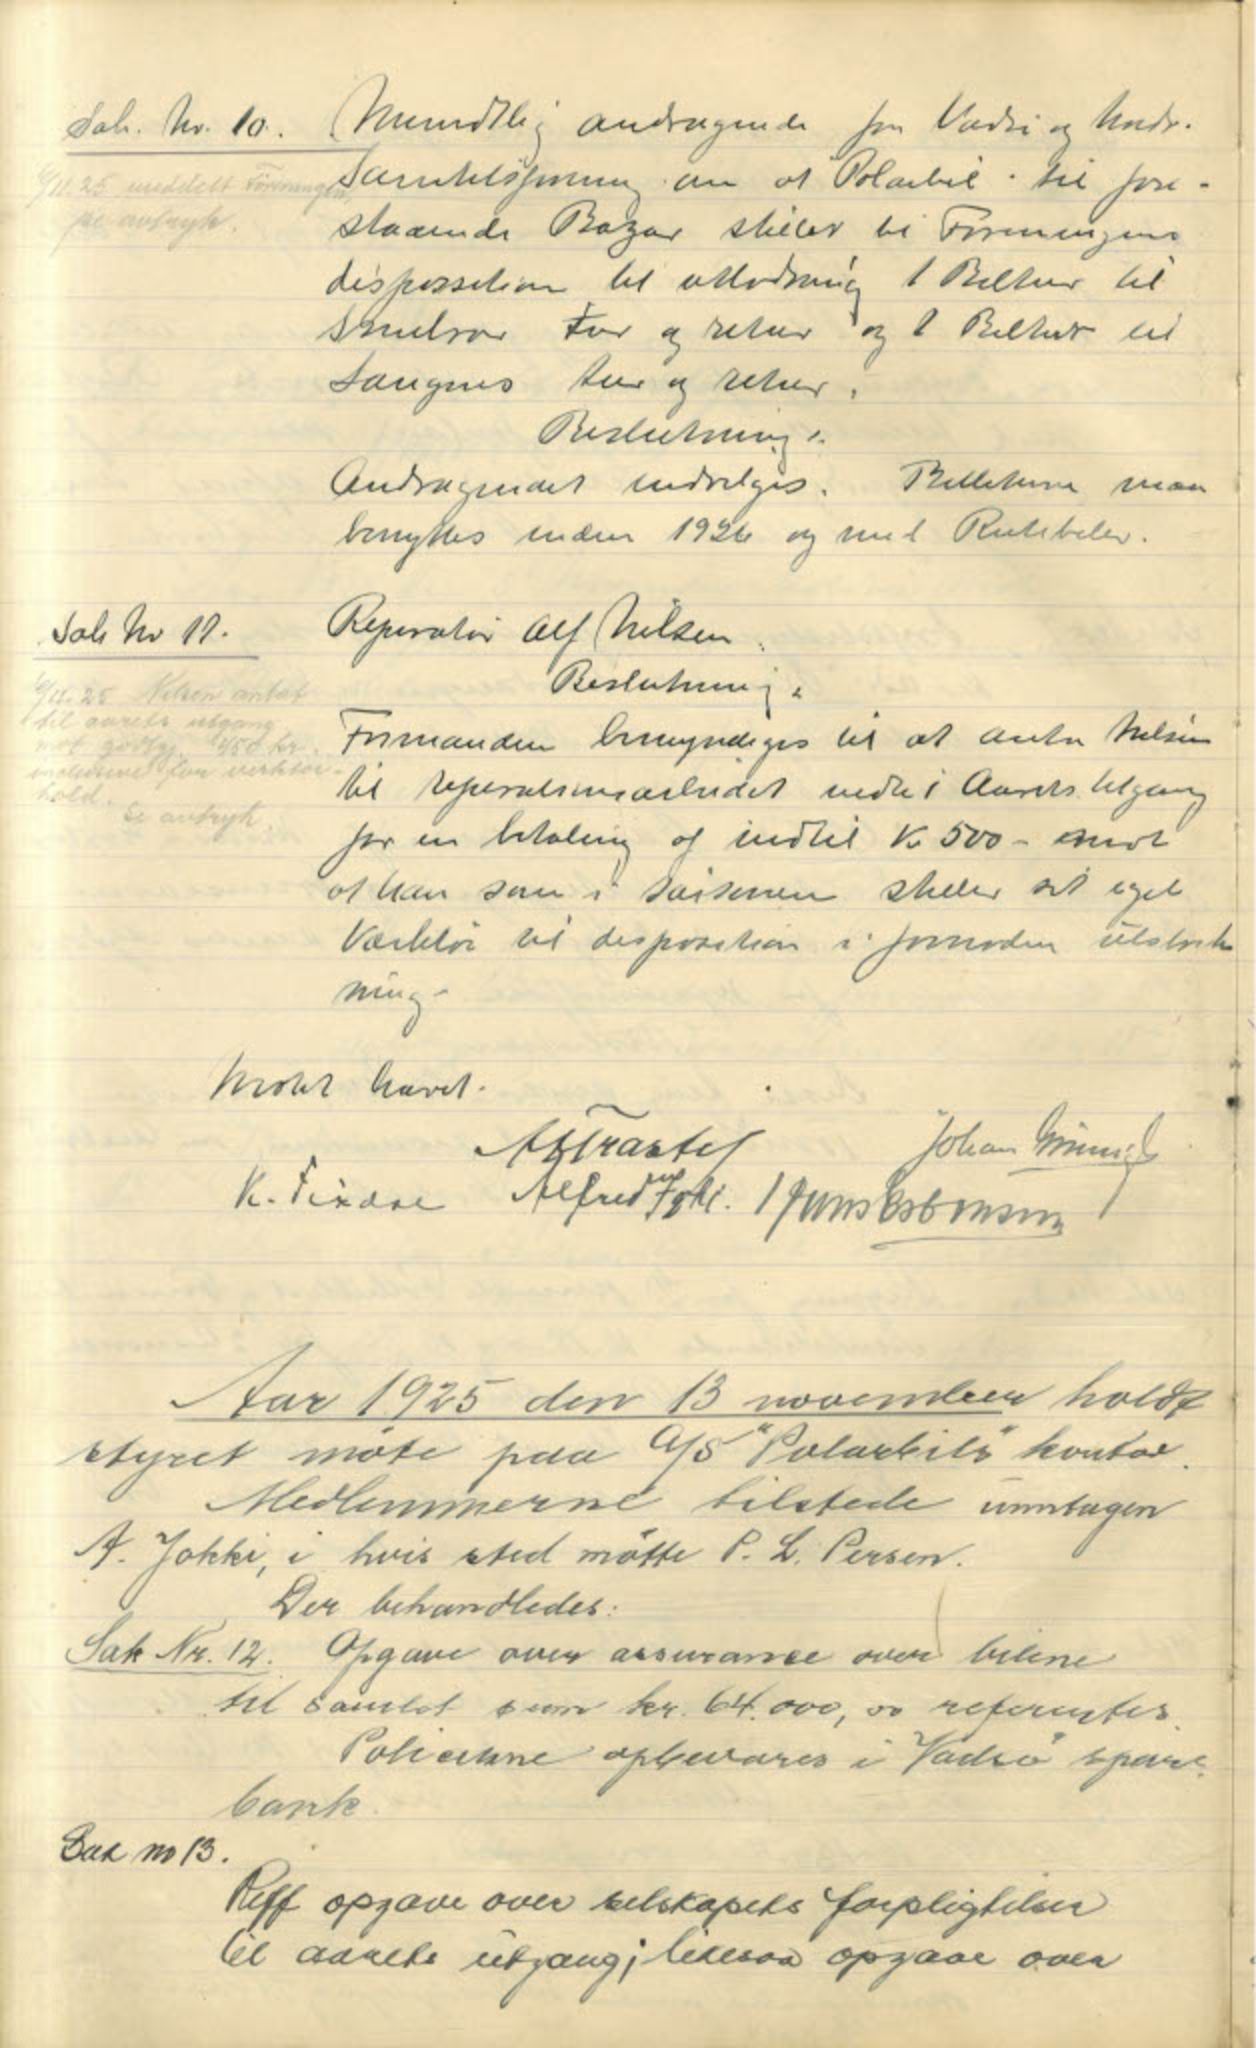 Sak. Nr. 10. Mundtlig andragende fra Vadsø og Nords.
om at "Polarbil" til fore-
6/11.25 meddelt Foreningen,
se avtryk.
staaende Bazar stiller til Foreningens
disposition til utlodning 1 Billet til
tur og retur og 1 Billet til
Langnes tur og retur.
Beslutning:
Andragendet indvilges. Billeterne maa
benyttes inden 1926 og med Rutebiler.
Sak Nr 11. Reperatør Alf Nilsen.
Beslutning:
6/11.25 Nilsen antat
til aarets utgang
mot godtg. 450 kr.
inclusive for verktøi-
hold.
Se avtryk.
Formanden bemyndiges til at anta Nilsen
til reperationsarbeidet indtil Aarets Utgang
for en betaling af indtil Kr 500- imot
at han som i saisonen stiller sit eget
Værktøi til disposition i fornøden utstræk
ning-
Møtet hævet.
Johan
K. Alfred Jokki. Jens Esbensen
Aar 1925 den 13 november holdt
styret møte paa A/S "Polarbils" kontor.
Medlemmerne tilstede unntagen
A. Jokki, i hvis sted møtte P. L. Persen.
Der behandledes:
Sak Nr. 12. Opgave over assurance over bilene
til samlet sum kr. 64.000,00 referertes.
Policerne opbevares i Vadsø spare-
bank.
Sak no 13.
Reff opgave over selskapets forpligtelser
til aarets utgang; likesaa opgave over